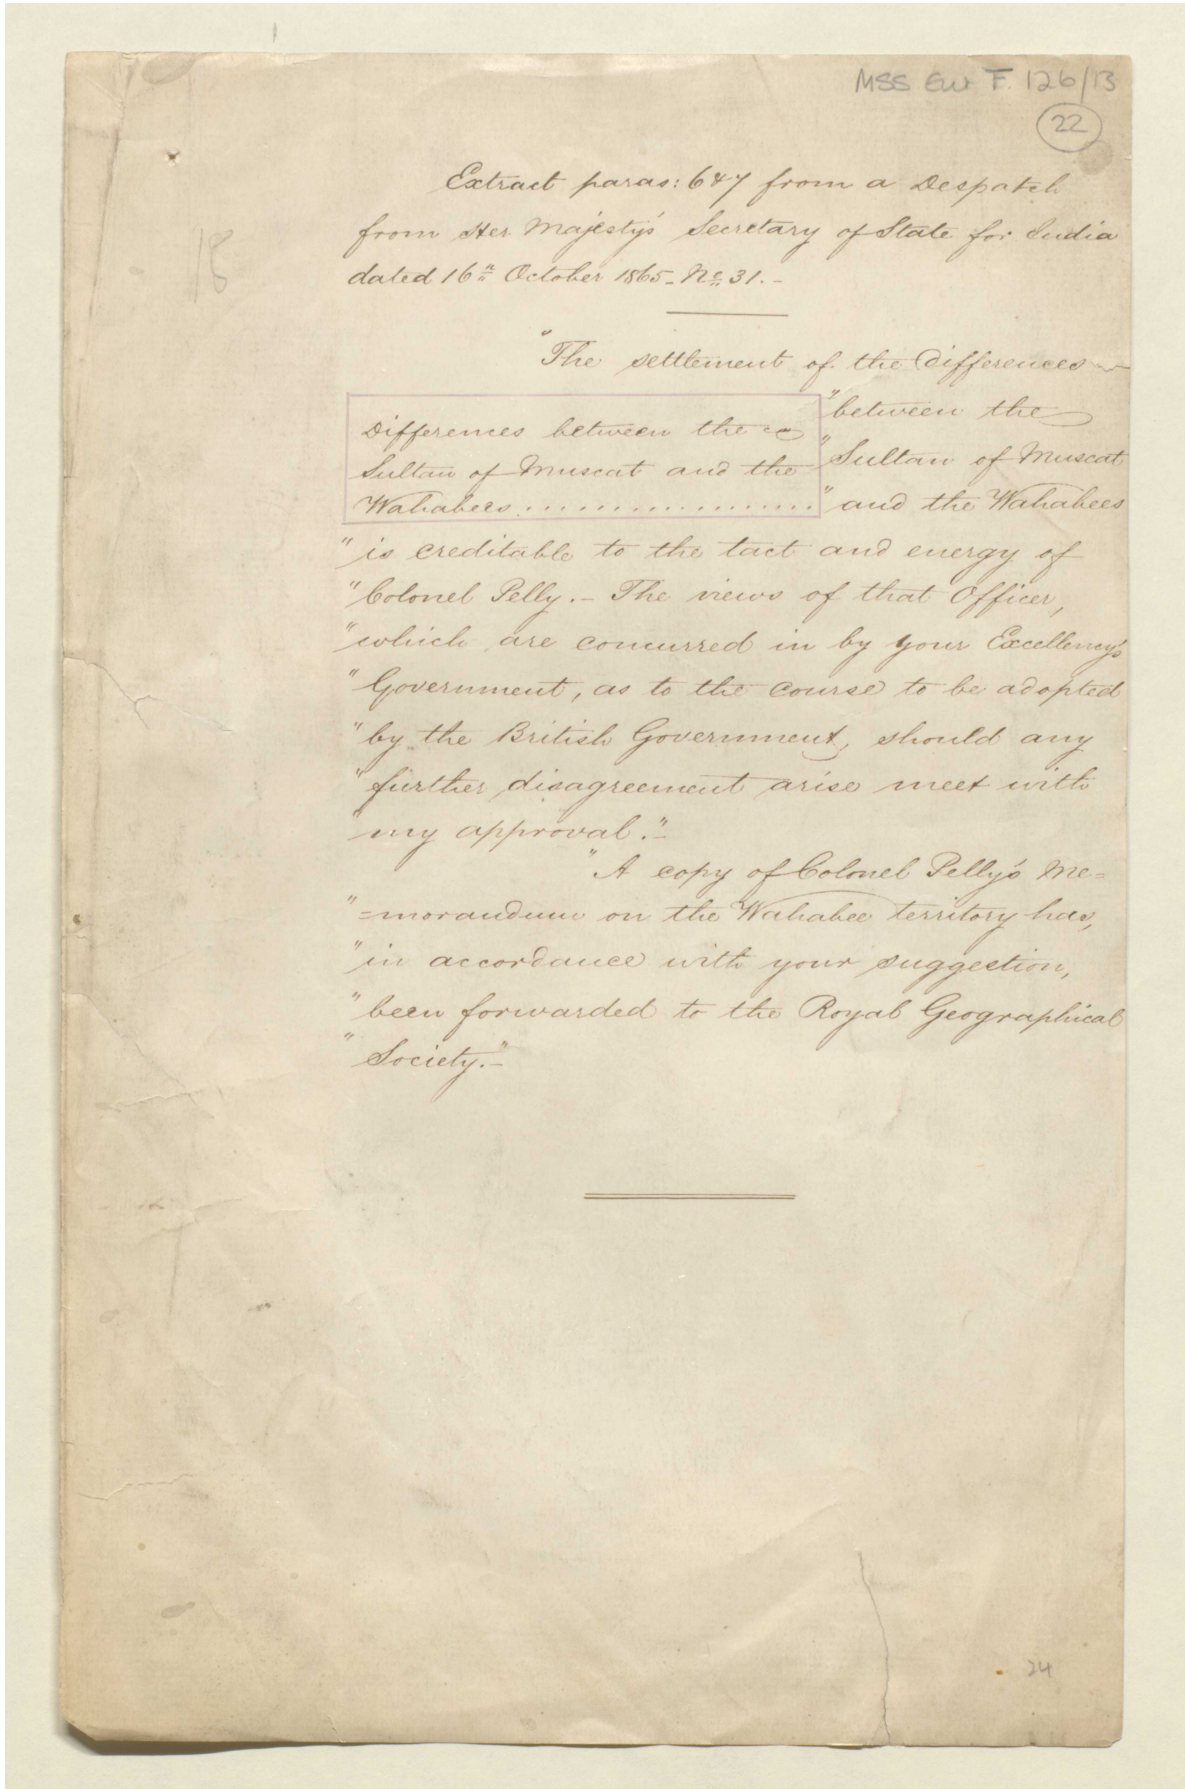 MSS Eur F. 126/13
22
18
Extract paras: 6 & 7 from a Despatch
from Her Majesty's Secretary of State for India
dated 16th October 1865 - No. 31. -
"The settlement of the differences
Differences between the
Sultan of Muscat and the
Wahabees ....................
"between the
"Sultan of Muscat
"and the Wahabees
"is creditable to the tact and energy of
"Colonel Pelly. - The views of that Officer,
"which are concurred in by your Excellency's
"Government, as to the course to be adopted
"by the British Government, should any
"further disagreement arise meet with
"my approval." -
"A copy of Colonel Pelly's Me=
"=morandum on the Wahabee territory has,
"in accordance with your suggestion,
"been forwarded to the Royal Geographical
"Society." -
24